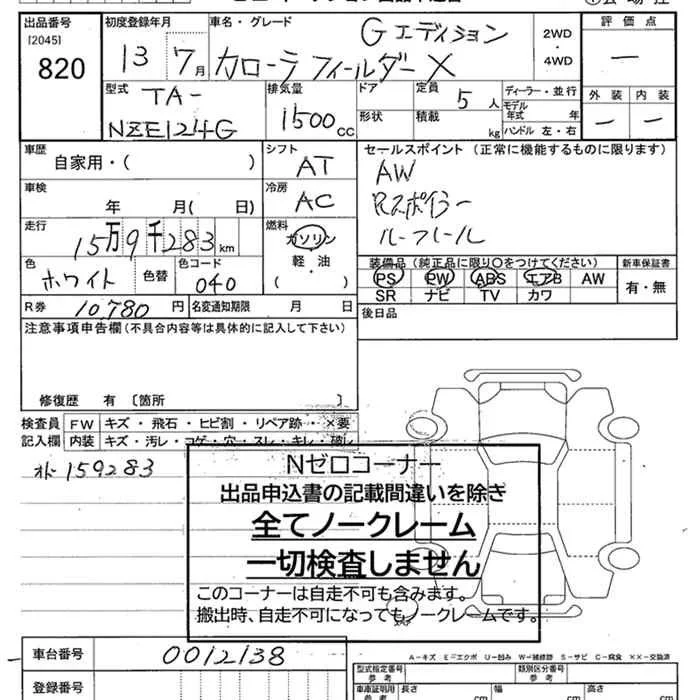 出品番号 初度登録年月 車名・グレード 評価点
[2045]
820
13 7月
Gエディション
カローラフィールダーX
2WD
・
4WD
—
型式 排気量 ドア 定員 ディーラー・並行
TA-
NZE124G
1500cc
5人
モデル
年式 年
形状 積載 kg ハンドル 左・右
外装 内装
— —
車歴 シフト セールスポイント (正常に機能するものに限ります)
自家用・( )
AT
AW
Rスポイラー
ルーフレール
車検 冷房
年 月( 日)
AC
走行 燃料
15万9千283km
ガソリン
軽・油
( )
色 色替 色コード
ホワイト
040
装備品 (純正品に限り○をつけてください) 新車保証書
PS PW ABS エアB AW
SR ナビ TV カワ
有・無
R券 10,780円 名変通知期限 月 日
後日品
注意事項申告欄 (不具合内容等は具体的に記入して下さい)
修復歴 有 〔箇所 〕
検査員 FW キズ・飛石・ヒビ割・リペア跡・×要
記入欄 内装 キズ・汚レ・コゲ・穴・スレ・キレ・破レ
オドー159283
Nゼロコーナー
出品申込書の記載間違いを除き
全てノークレーム
一切検査しません
このコーナーは自走不可も含みます。
搬出時、自走不可になってもノークレームです。
車台番号 0012138
A−キズ E−エクボ U−凹み W−補修跡 S−サビ C−腐食 ××−交換済
登録番号
型式指定番号
参考
類別区分番号
参考
車庫証明用
参考
長さ cm 幅 cm 高さ cm